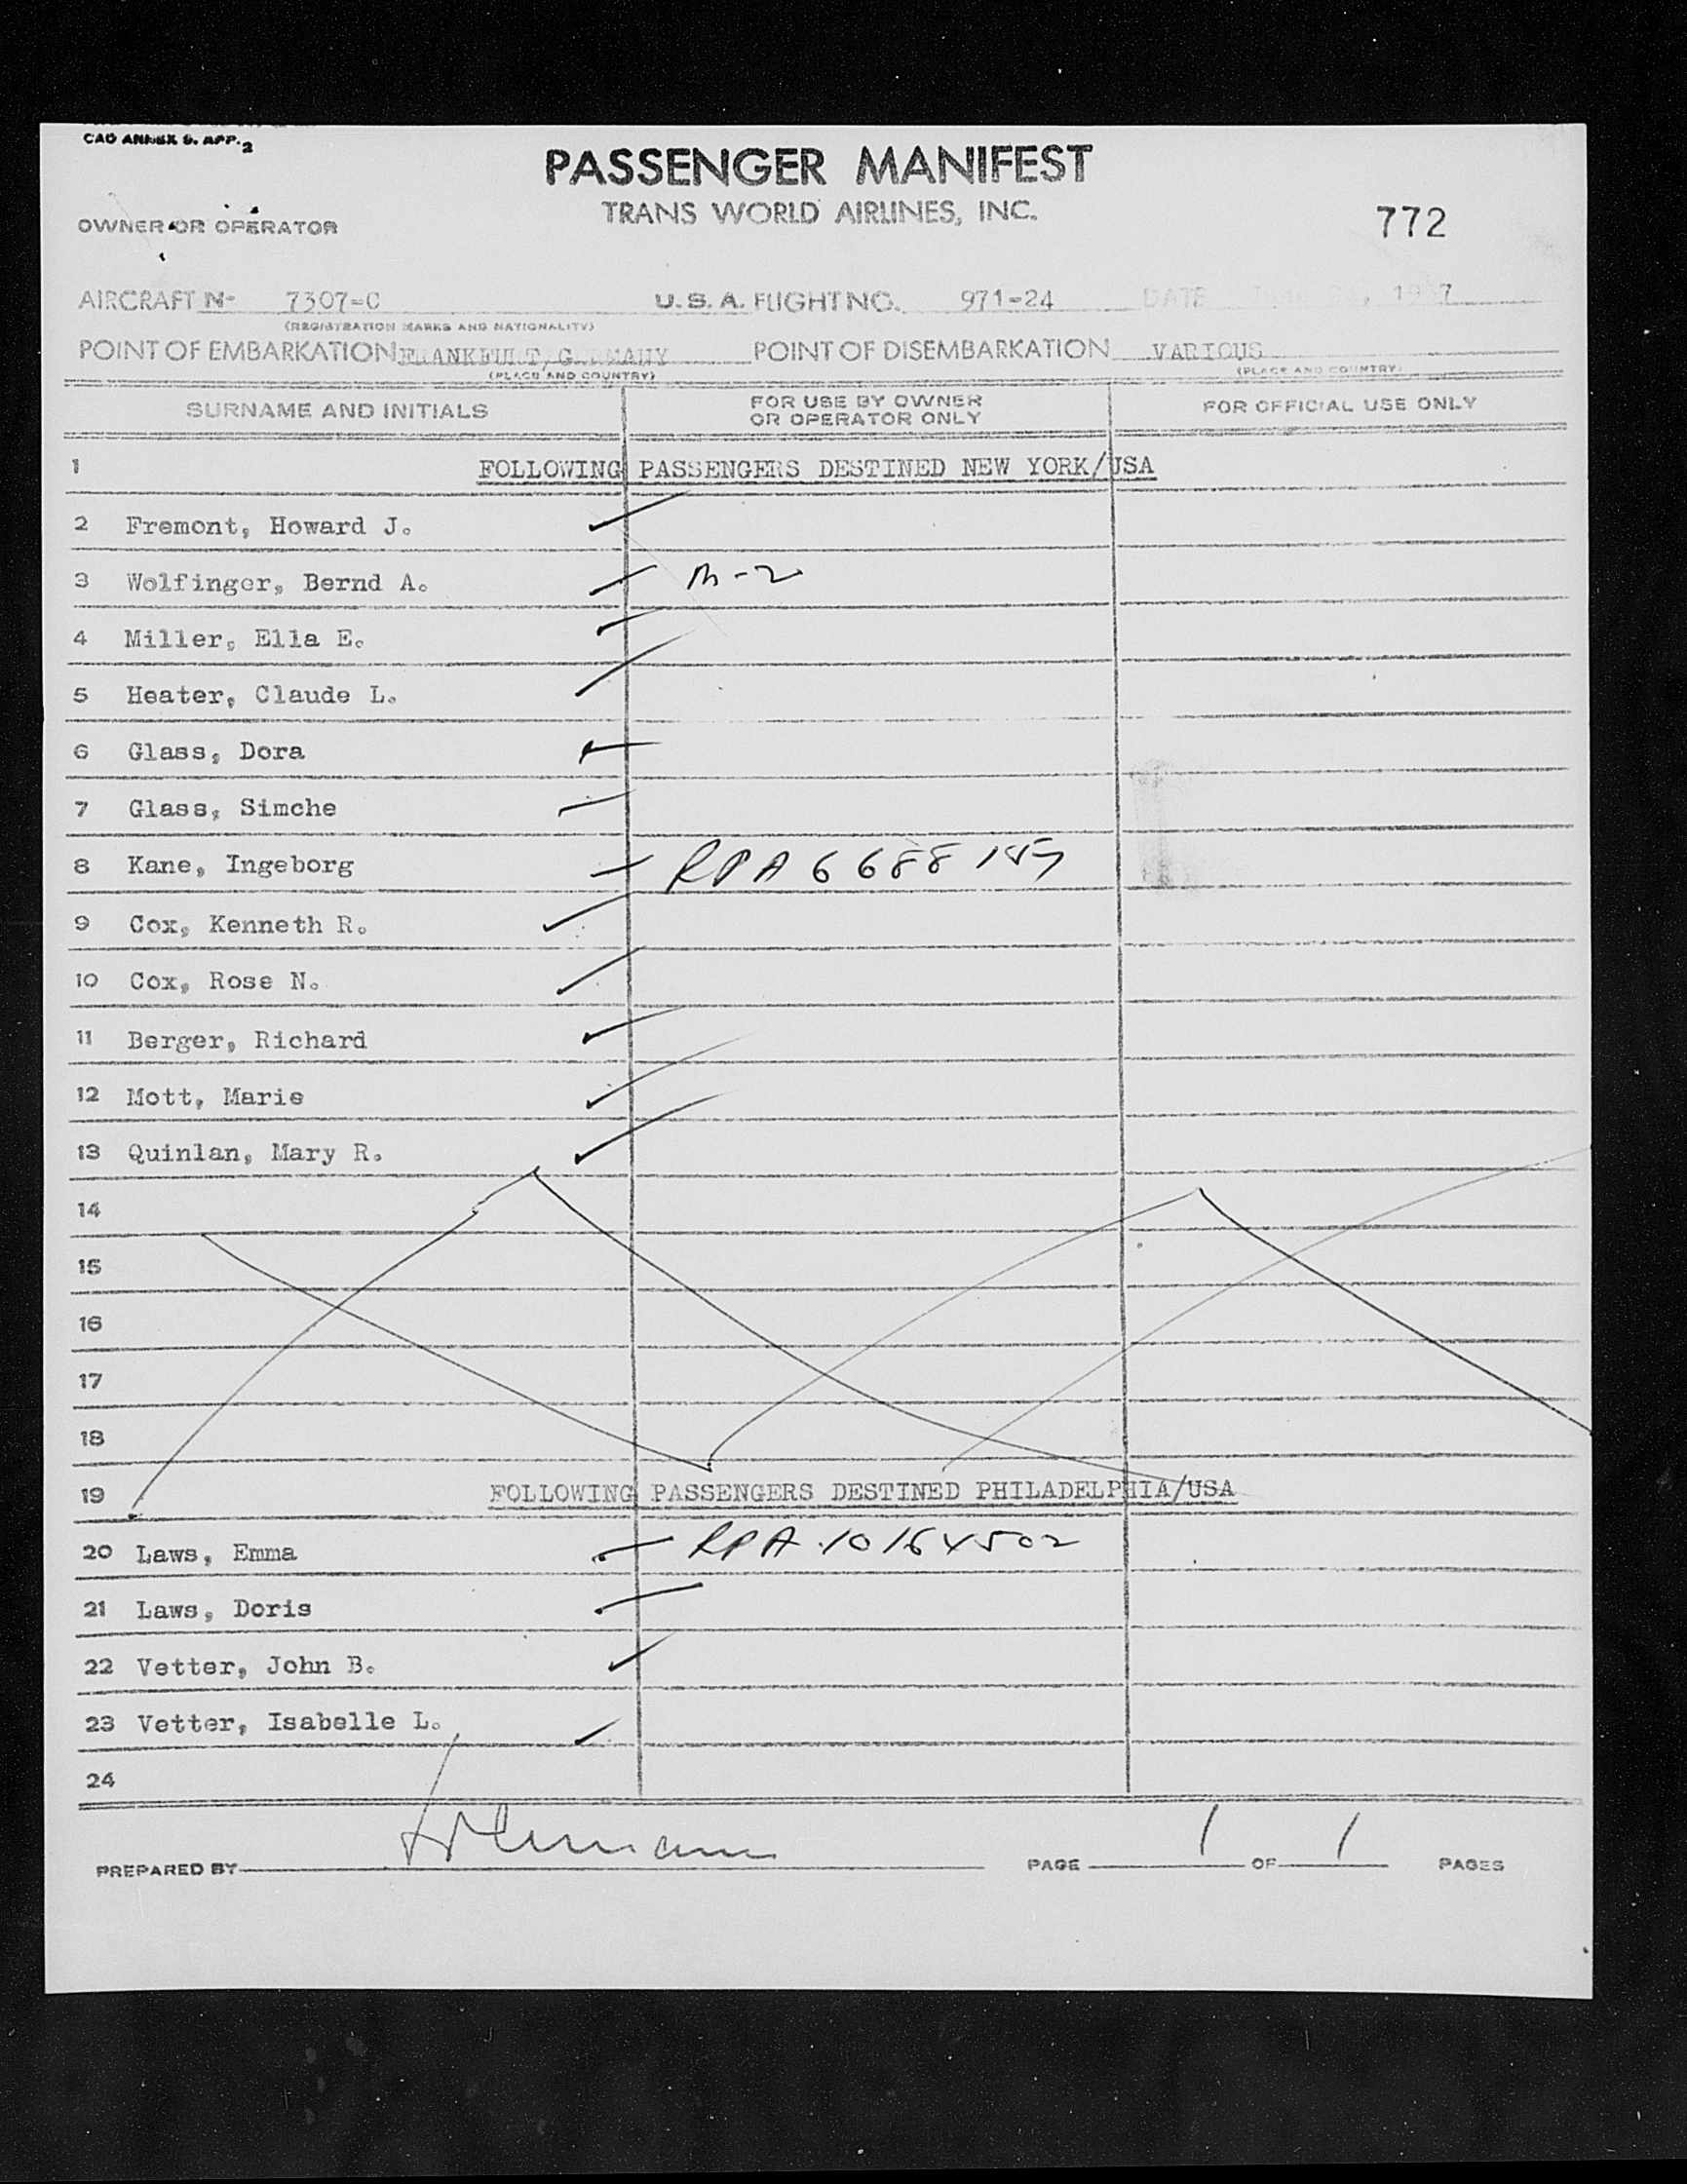 CAO ANNEX 9. APP. 2
PASSENGER MANIFEST
TRANS WORLD AIRLINES, INC.
772
OWNER OR OPERATOR
AIRCRAFT N- 7307-C U. S. A. FLIGHT NO. 971-24 DATE
(REGISTRATION MARKS AND NATIONALITY)
POINT OF EMBARKATION FRANKFURT, GERMANY POINT OF DISEMBARKATION VARIOUS
(PLACE AND COUNTRY) (PLACE AND COUNTRY)
SURNAME AND INITIALS FOR USE BY OWNER OR OPERATOR ONLY FOR OFFICIAL USE ONLY
1 FOLLOWING PASSENGERS DESTINED NEW YORK/USA
2 Fremont, Howard J.
3 Wolfinger, Bernd A. M-2
4 Miller, Ella E.
5 Heater, Claude L.
6 Glass, Dora
7 Glass, Simche
8 Kane, Ingeborg RPA
9 Cox, Kenneth R.
10 Cox, Rose N.
11 Berger, Richard
12 Mott, Marie
13 Quinlan, Mary R.
14
15
16
17
18
19 FOLLOWING PASSENGERS DESTINED PHILADELPHIA/USA
20 Laws, Emma RPA
21 Laws, Doris
22 Vetter, John B.
23 Vetter, Isabelle L.
24
PREPARED BY PAGE 1 OF 1 PAGES